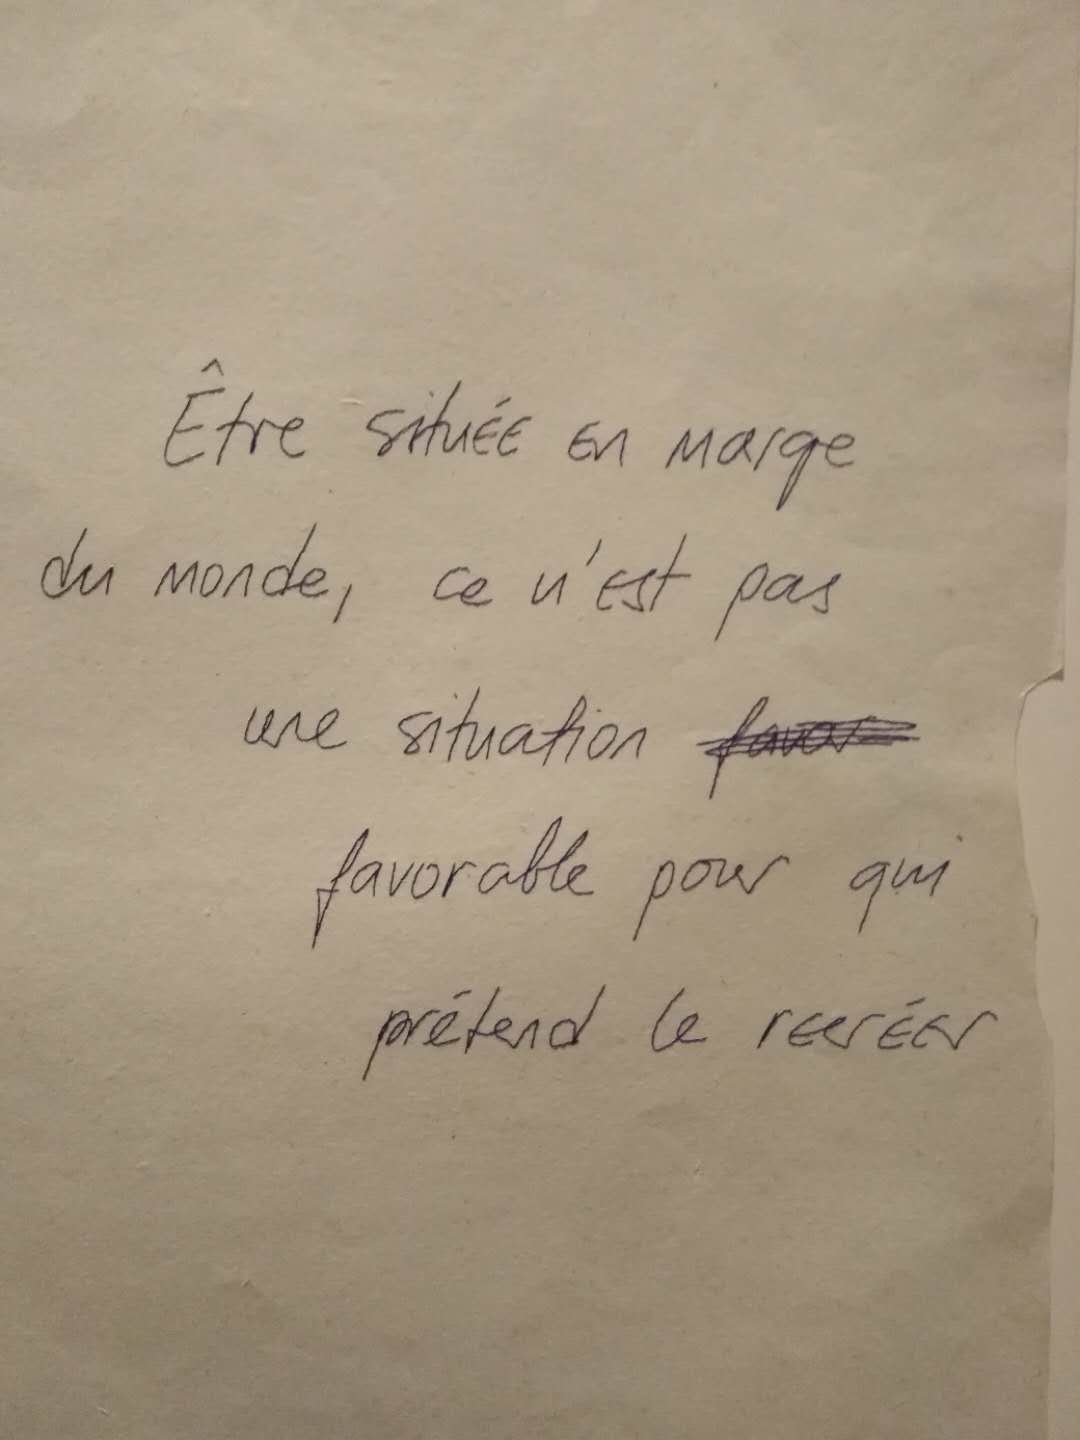 Être située en marge
du monde, ce n'est pas
une situation favor
favorable pour qui
prétend le recréer